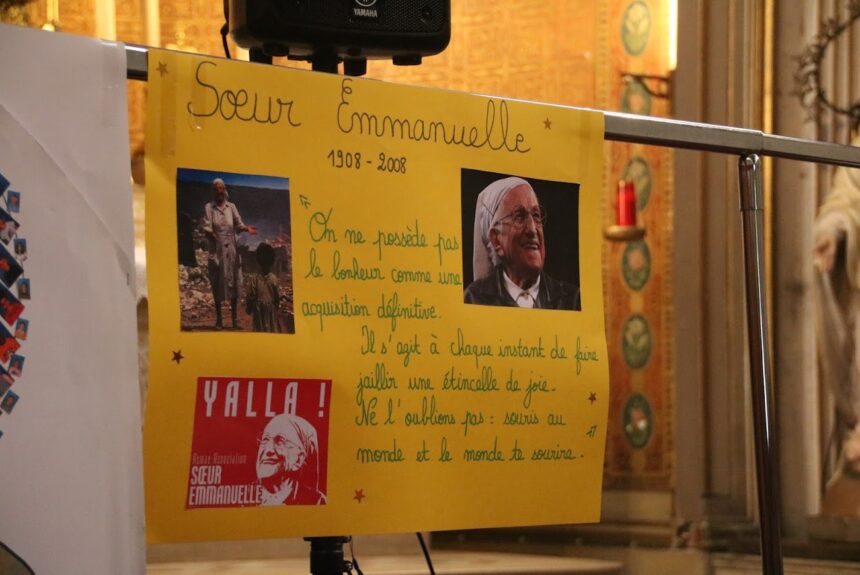 YAMAHA
Sœur Emmanuelle
1908 - 2008
" On ne possède pas
le bonheur comme une
acquisition définitive.
Il s'agit à chaque instant de faire
jaillir une étincelle de joie.
Ne l'oublions pas : souris au
monde et le monde te sourira. "
YALLA !
Asmae Association
SŒUR
EMMANUELLE